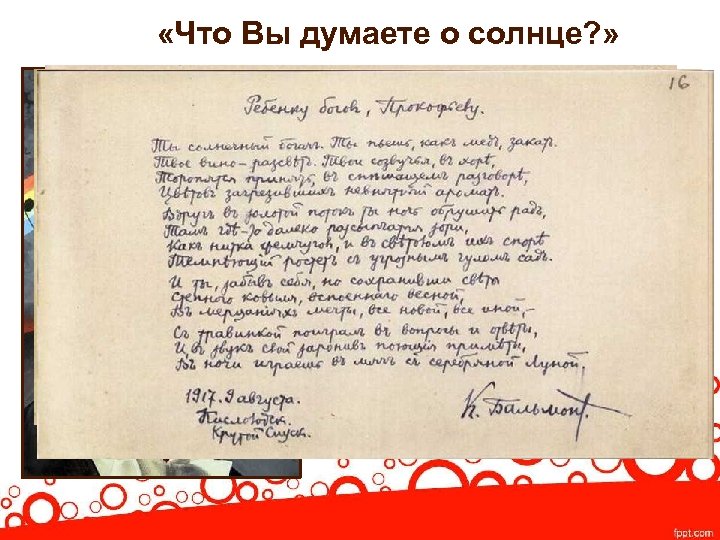 «Что Вы думаете о солнце?»
16
Ребенку богов, Прокофьеву.
Ты солнечный богачъ. Ты пьешь, какъ медъ, закатъ.
Твое вино – разсвѣтъ. Твои созвучья, въ хорѣ,
Торопятся принять, въ спѣшащемъ разговорѣ,
Цвѣтовъ загрезившихъ невнятный ароматъ.
Вдругъ въ золотой потокъ ты ночь обрушить радъ,
Тамъ гдѣ-то далеко разсыпчатыя зори,
Какъ нитка жемчуговъ, и въ свѣтломъ ихъ спорѣ
Темнѣющій ростетъ съ угрознымъ гуломъ садъ.
И ты, забывъ себя, но сохранивши свѣтъ
Степного ковыля, вспоеннаго весной,
Въ мерцаньяхъ мечты, все новой, все иной, –
Съ травинкой поигралъ въ вопросы и отвѣты,
И, въ звукъ свой заронивъ поющія примѣты,
Въ ночи играешь въ мячъ съ серебряной Луной.
1917. 9 августа.
Кисловодскъ.
Крутой Спускъ.
К. Бальмонтъ.
fppt.com